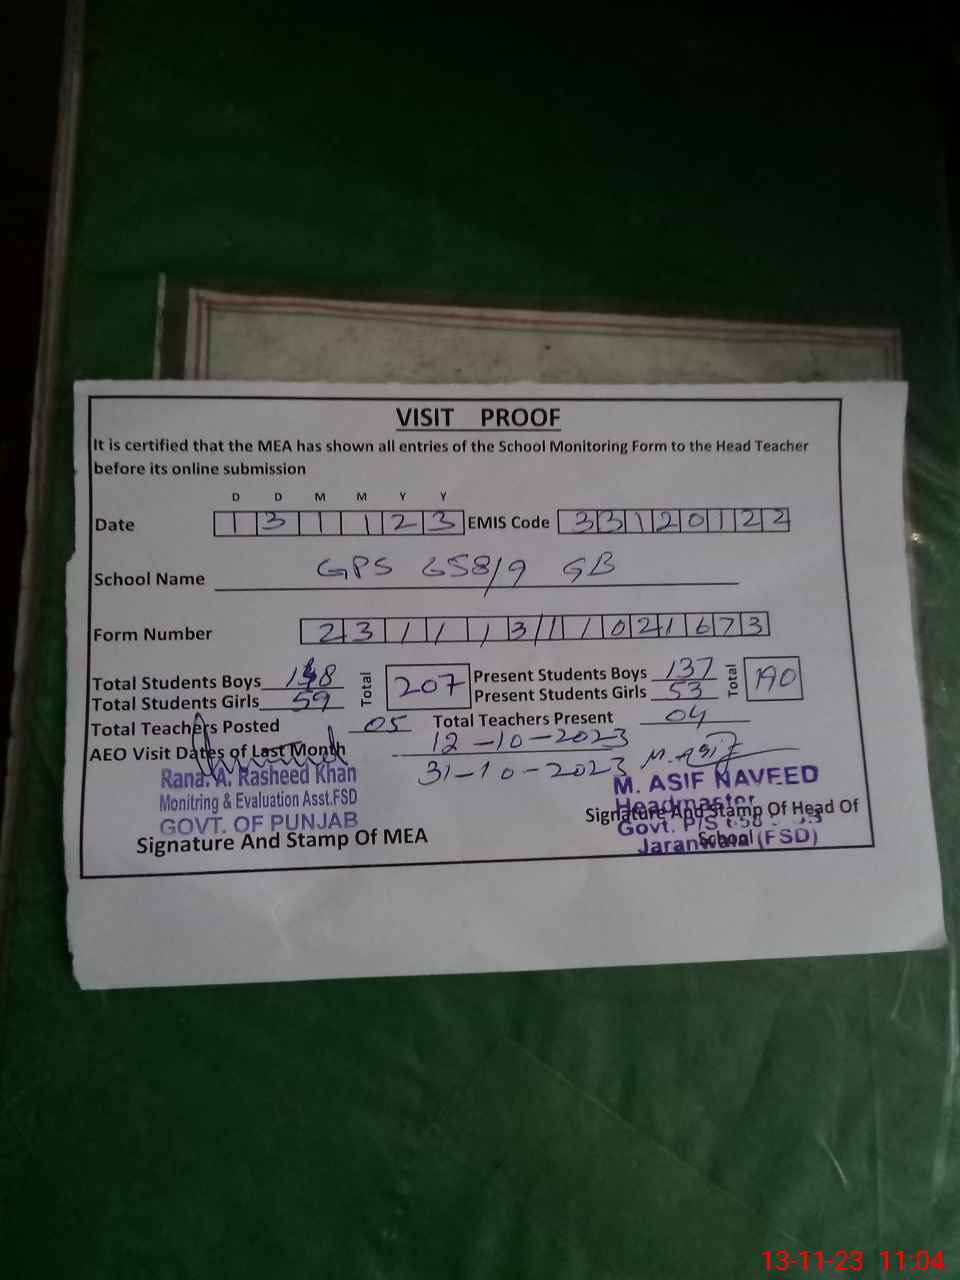 VISIT PROOF
It is certified that the MEA has shown all entries of the School Monitoring Form to the Head Teacher
before its online submission
D D M M Y Y
Date 1 3 1 1 2 3 EMIS Code 3 3 1 2 0 1 2 2
School Name GPS 658/9 GB
Form Number 2 3 1 1 1 3 1 1 0 2 1 6 7 3
Total Students Boys 148 Total 207 Present Students Boys 137 Total 190
Total Students Girls 59 Present Students Girls 53
Total Teachers Posted 05 Total Teachers Present 04
AEO Visit Dates of Last Month 12-10-2023
31-10-2023 M. Asif
Rana. A. Rasheed Khan
Monitring & Evaluation Asst.FSD
GOVT. OF PUNJAB
Signature And Stamp Of MEA
M. ASIF NAVEED
Headmaster
Signature And Stamp Of Head Of
Govt. P/S 658
School
Jaranwala (FSD)
13-11-23 11:04